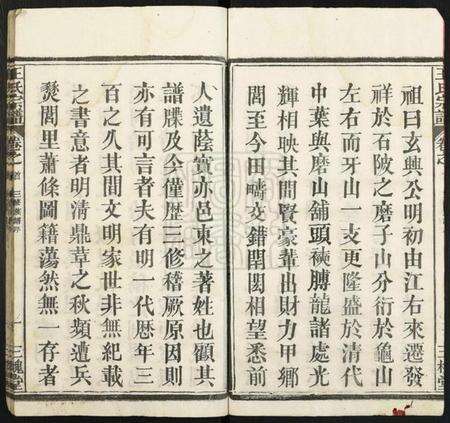 王氏宗譜
卷之
三槐堂
祖曰玄興公明初由江右來遷發
祥於石陂之磨子山分衍於龜山
左右而牙山一支更隆盛於清代
中葉與磨山舖頭 膊龍諸處光
輝相映其間賢豪輩出財力甲鄉
閭至今田疇交錯閈閎相望悉前
人遺蔭實亦邑東之著姓也顧其
譜牒及今僅歷三修稽厥原因則
亦有可言者夫有明一代歷年三
百之久其間文明家世非無紀載
之書意者明清鼎革之秋頻遭兵
燹閭里蕭條圖籍蕩然無一存者
王氏宗譜
卷之首
十
三槐堂